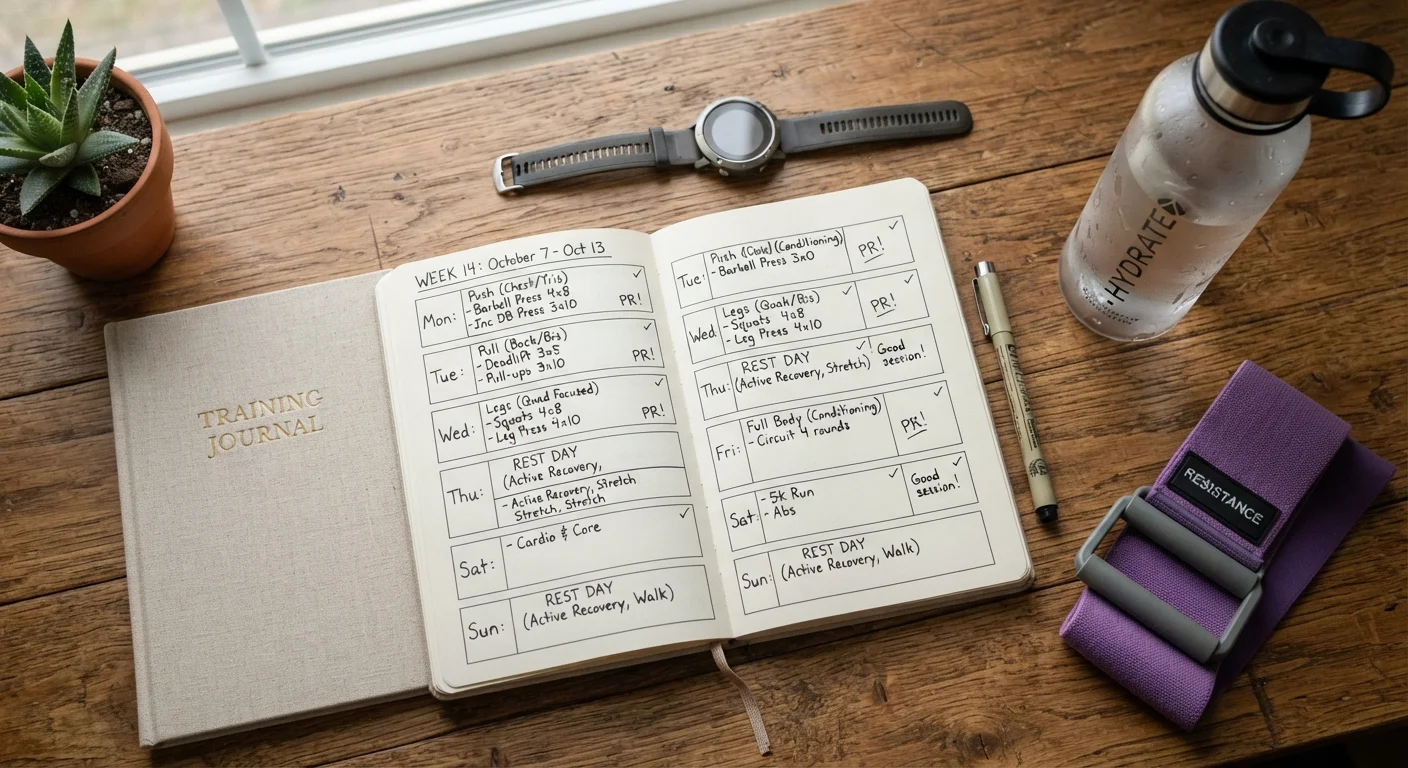 TRAINING
JOURNAL
WEEK 14: October 7 - Oct 13
Mon:
Push (Chest/Tris)
- Barbell Press 4x8
- Inc DB Press 3x10
✓
PR!
Tue:
Pull (Back/Bis)
- Deadlift 3x5
- Pull-ups 3x10
✓
PR!
Wed:
Legs (Quad Focused)
- Squats 4x8
- Leg Press 4x10
✓
PR!
Thu:
REST DAY
(Active Recovery,
- Active Recovery, Stretch
Stretch, Stretch
Sat:
- Cardio & Core
✓
Sun:
REST DAY
(Active Recovery, Walk)
Tue:
(Conditioning)
- Barbell Press
PR!
✓
Wed
Legs
- Squats 4x8
- Leg Press 4x10
✓
PR!
✓
Thu:
REST DAY
(Active Recovery, Stretch)
✓
Good
session!
Fri:
Full Body (Conditioning)
- Circuit 4 rounds
✓
Sat:
- 5k Run
- Abs
✓
Good
session!
✓
Sun:
REST DAY
(Active Recovery, Walk)
HYDRATE
RESISTANCE